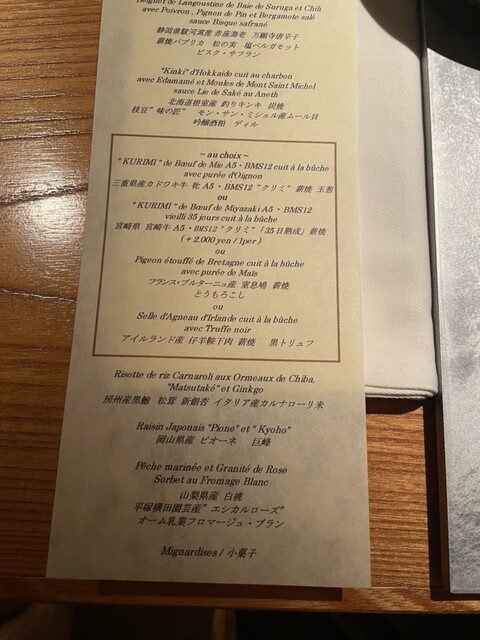 Beignet de Langoustine de Baie de Suruga et Chili
avec Poivron, Pignon de Pin et Bergamote salé
sauce Bisque safrané
静岡県駿河湾産 赤座海老 万願寺唐辛子
薪焼パプリカ 松の実 塩ベルガモット
ビスク・サフラン
"Kinki" d'Hokkaido cuit au charbon
avec Edamamé et Moules de Mont Saint Michel
sauce Lie de Saké au Aneth
北海道根室産 釣りキンキ 炭焼
枝豆"味の匠" モン・サン・ミシェル産ムール貝
吟醸酒粕 ディル
~ au choix ~
"KURIMI" de Bœuf de Mie A5・BMS12 cuit à la bûche
avec purée d'Oignon
三重県産カドワキ牛 牝 A5・BMS12 "クリミ" 薪焼 玉葱
ou
"KURIMI" de Bœuf de Miyazaki A5・BMS12
vieilli 35 jours cuit à la bûche
宮崎県 宮崎牛 A5・BMS12 "クリミ"「35日熟成」薪焼
(+2,000 yen / 1per)
ou
Pigeon étouffé de Bretagne cuit à la bûche
avec purée de Maïs
フランス・ブルターニュ産 窒息鳩 薪焼
とうもろこし
ou
Selle d'Agneau d'Irlande cuit à la bûche
avec Truffe noir
アイルランド産 仔羊鞍下肉 薪焼 黒トリュフ
Risotte de riz Carnaroli aux Ormeaux de Chiba,
"Matsutaké" et Ginkgo
房州産黒鮑 松茸 新銀杏 イタリア産カルナローリ米
Raisin Japonais "Pione" et "Kyoho"
岡山県産 ピオーネ 巨峰
Pêche marinée et Granité de Rose
Sorbet au Fromage Blanc
山梨県産 白桃
平塚横田園芸産"エシカルローズ"
オーム乳業フロマージュ・ブラン
Mignardises / 小菓子